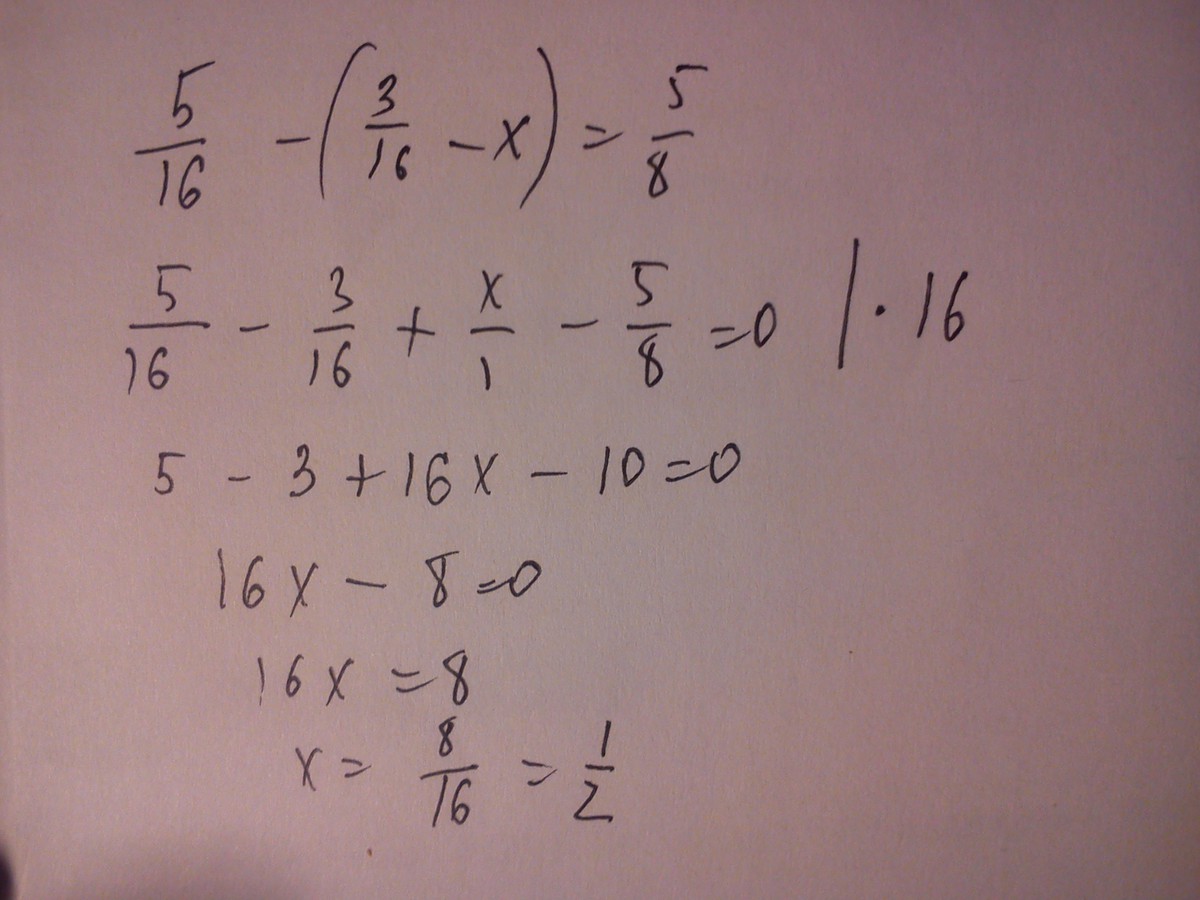 5/16 - (3/16 - x) = 5/8
5/16 - 3/16 + x/1 - 5/8 = 0 | · 16
5 - 3 + 16x - 10 = 0
16x - 8 = 0
16x = 8
x = 8/16 = 1/2